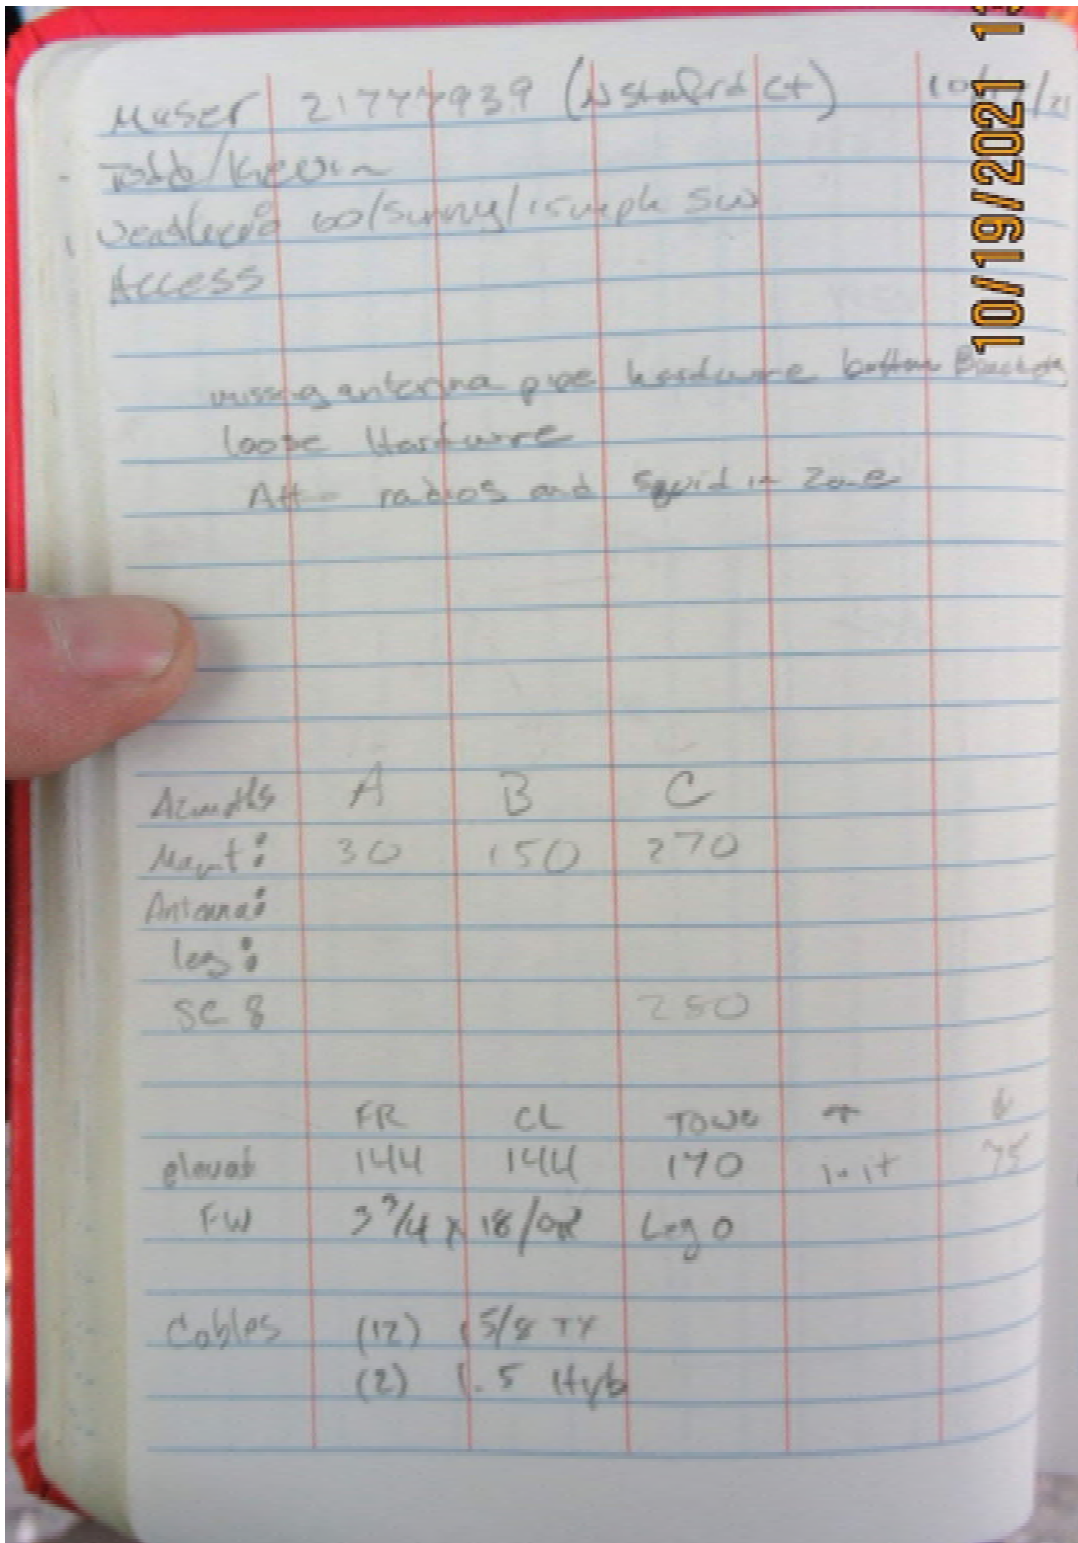 Maser 21777939 (N Stafford Ct) 10/ /21
Todd/Kevin
Weather: 60/Sunny/15mph SW
Access
missing antenna pipe hardware bottom Brackets
loose Hardware
Att radios and Squid in Zone
Azmuths A B C
Mount: 30 150 270
Antenna:
leg:
SC 8 280
FR CL Tower
elevat 144 144 170 init 75
FW 3 3/4 x 18/ Leg 0
Cables (12) 1 5/8 TX
(2) 1.5 Hyb
10/19/2021 13